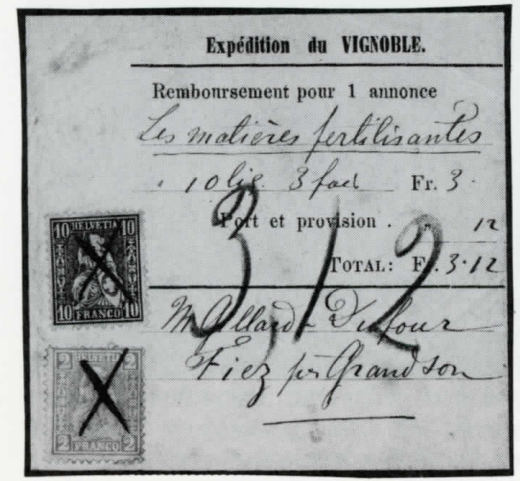 Expédition du VIGNOBLE.
Remboursement pour 1 annonce
Les matières fertilisantes
10 lig. 3 Fr. 3.
Port et provision . " 12
TOTAL: Fr. 3.12
3,12
M. Allard-Dufour
Fiez pr Grandson
10 HELVETIA 10
10 FRANCO 10
2 HELVETIA 2
2 FRANCO 2